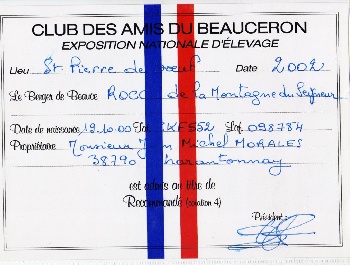 CLUB DES AMIS DU BEAUCERON
EXPOSITION NATIONALE D'ÉLEVAGE
Lieu St Pierre de Boeuf Date 2002
Le Berger de Beauce ROCCO de la Montagne du Seigneur
Date de naissance 19.10.00 Lof. 098784
Propriétaire Monsieur Jean Michel MORALES
38790 Charantonnay
est admis au titre de
Recommandé (cotation 4)
Président :